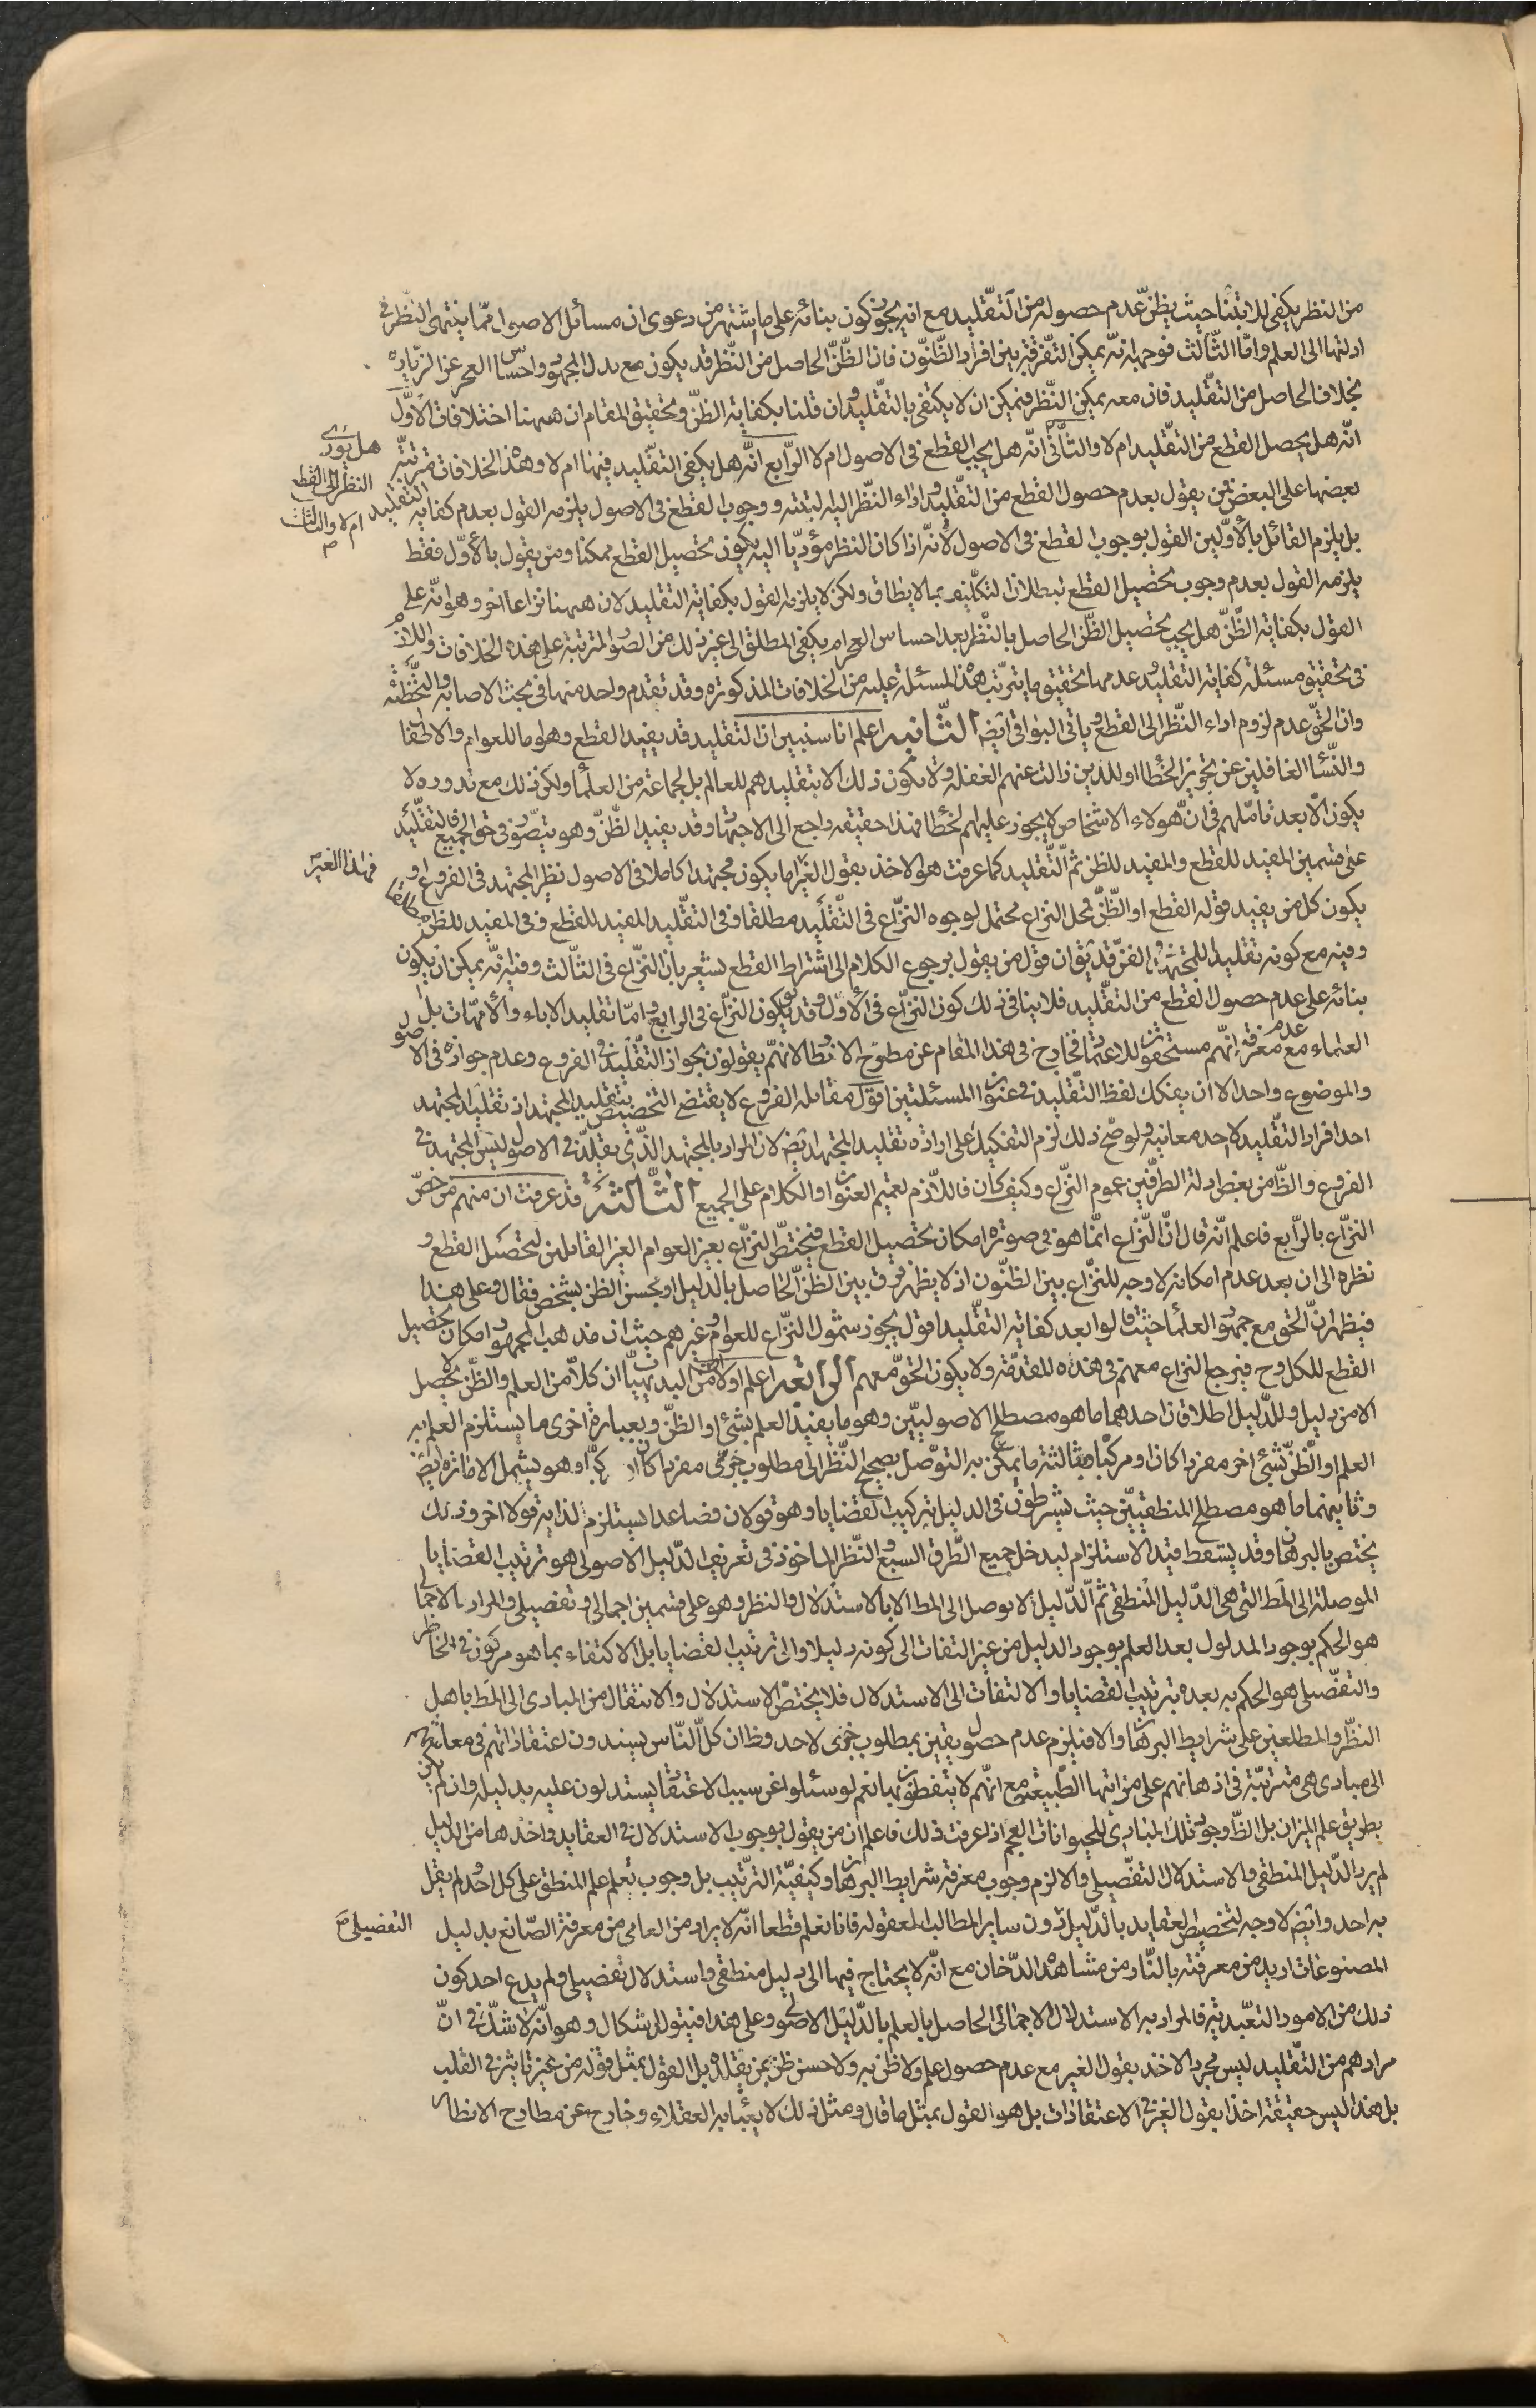 من النظر يكفى للابتناء حيث يظنّ عدم حصوله من التقليد مع انه يجوز كون بنائه على ما اشتهر من دعوى ان مسائل الاصول ممّا ينتهى النظر فى
ادلتها الى العلم وامّا الثّالث فوجهه انه يمكن التفرقة بين افراد الظّنون فان الظّنّ الحاصل من النّظر قد يكون مع بذل الجهد واحساس العجز عن الزيادة
بخلاف الحاصل من التقليد فان معه يمكن النّظر فيمكن ان لا يكتفى بالتقليد وان قلنا بكفاية الظنّ وتحقيق المقام ان ههنا اختلافات الاوّل
انّه هل يحصل القطع من التّقليد ام لا والثّانى انّه هل يجب القطع فى الاصول ام لا الرّابع انّه هل يكفى التقليد فيها ام لا وهذه الخلافات مترتبة
هل يؤدى
النظر الى القطع
ام لا والثالث
بعضها على البعض فمن يقول بعدم حصول القطع من التّقليد واداء النّظر اليه البتّة ووجوب القطع فى الاصول يلزمه القول بعدم كفاية التقليد
بل يلزم القائل بالأوّلين القول بوجوب القطع فى الاصول لأنّه اذا كان النظر مؤدّيا اليه يكون تحصيل القطع ممكنا ومن يقول بالأوّل فقط
يلزمه القول بعدم وجوب تحصيل القطع لبطلان التكليف بما لا يطاق ولكن لا يلزمه القول بكفاية التقليد لان ههنا نزاعا اخر وهو انّه على
القول بكفاية الظّنّ هل يجب تحصيل الظّن الحاصل بالنّظر بعد احساس العجز ام يكفى المطلق الى غير ذلك من الصّور المترتبة على هذه الخلافات واللازم
فى تحقيق مسئلة كفاية التقليد وعدمها تحقيق ما يترتّب هذه المسئلة عليه من الخلافات المذكورة وقد تقدم واحد منها فى بحث الاصابة والتّخطئة
وان الحقّ عدم لزوم اداء النّظر الى القطع ويأتى البواقى ايضا الثّانية اعلم انا سنبيّن ان التقليد قد يفيد القطع وهو اما للعوام والاطفال
والنّساء الغافلين عن تجويز الخطأ او للذين زالت عنهم الغفلة ولا يكون ذلك الا بتقليدهم للعالم بل لجماعة من العلماء ولكن ذلك مع ندوره لا
يكون الّا بعد تاملهم فى انّ هؤلاء الاشخاص لا يجوز عليهم الخطأ فهذا حقيقة راجع الى الاجتهاد وقد يفيد الظّنّ وهو يتصوّر فى حق الجميع فالتقليد
على قسمين المفيد للقطع والمفيد للظن ثمّ التّقليد كما عرفت هو الاخذ بقول الغير اما يكون مجتهدا كاملا فى الاصول نظير المجتهد فى الفروع او
فهذا الغير
يكون كل من يفيد قوله القطع او الظّنّ فمحل النزاع محتمل لوجوه النزّاع فى التّقليد مطلقا وفى التقليد المفيد للقطع وفى المفيد للظن مطلقا
وفيه مع كونه تقليدا للمجتهد فى الفنّ قد يق ان قول من يقول برجوع الكلام الى اشتراط القطع يشعر بان النّزاع فى الثّالث وفيه انّه يمكن ان يكون
بنائه على عدم حصول القطع من التقليد فلا ينافى ذلك كون النزّاع فى الأوّل وقد يق يكون النزّاع فى الرابع وامّا تقليد الاباء والأمّهات بل
العلماء مع عدم معرفة انّهم مستحقون للاعتماد فخارج فى هذا المقام عن مطرح الانظار لانهّم يقولون بجواز التّقليد فى الفروع وعدم جوازه فى الاصول
والموضوع واحد الا ان يفكك لفظ التّقليد فى عنوان المسئلتين اقول مقابلة الفروع لا يقتضى التخصيص بتقليد المجتهد اذ تقليد المجتهد
احد افراد التقليد لا احد معانيه ولو صحّ ذلك لزم التفكيك على ارادة تقليد المجتهد ايضا لان المراد بالمجتهد الذّى يقلّد فى الاصول ليس المجتهد فى
الفروع والظّ من بعض ادلة الطرّفين عموم النزّاع وكيف كان فاللاّزم تعميم العنوان او الكلام على الجميع الثّالثة قد عرفت ان منهم من خصّ
النزّاع بالرّابع فاعلم انّه قال انّ النّزاع انمّا هو فى صورة امكان تحصيل القطع فيختصّ النّزاع بغير العوام الغير القابلين لتحصيل القطع و
نظره الى ان بعد عدم امكانه لا وجه للنزّاع بين الظّنون اذ لا يظهر فرق بين الظنّ الحاصل بالدّليل او بحسن الظن بشخص فقال وعلى هذا
فيظهر انّ الحق مع جمهور العلماء حيث قالوا بعد كفاية التقّليد اقول يجوز شمول النزّاع للعوام وغيرهم حيث ان مذهب الجمهور امكان تحصيل
القطع للكل وح فيرجع النّزاع معهم فى هذه المقدّمة ولا يكون الحقّ معهم الرابعة اعلم اولا انّ من البديهيّات ان كلاّ من العلم والظّن لا يحصل
الا من دليل وللدّليل اطلاقان احدهما ما هو مصطلح الاصوليّين وهو ما يفيد العلم بشئ او الظنّ وبعبارة اخرى ما يستلزم العلم به
العلم او الظّنّ بشئ اخر مفردا كان او مركبا وبثالثة ما يمكن به التوصّل بصحيح النّظر الى مطلوب خبرى مفردا كان او مركّبا وهو يشمل الامارة ايضا
وثانيهما ما هو مصطلح المنطقيّين حيث يشترطون فى الدليل تركيب القضايا وهو قولان فصاعدا يستلزم لذاته قولا اخر وذلك
يختص بالبرهان وقد يسقط قيد الاستلزام ليدخل جميع الطّرق السبع والنّظر الماخوذ فى تعريف الدّليل الاصولى هو ترتيب القضايا
الموصلة الى المط التى هى الدّليل المنطقى ثم الّدليل لا يوصل الى المط الا بالاستدلال والنظر وهو على قسمين اجمالى وتفصيلى والمراد بالاجمالى
هو الحكم بوجود المدلول بعد العلم بوجود الدليل من غير التفات الى كونه دليلا والى ترتيب القضايا بل الاكتفاء بما هو مركوز فى الخاطر
والتفصّيلى هو الحكم به بعده بترتيب القضايا والالتفات الى الاستدلال فلا يختصّ الاستدلال والانتقال من المبادى الى المط باهل
النظّر والمطلعين على شرايط البرهان والا فيلزم عدم حصول يقين بمطلوب خبرى لاحد وظ ان كلّ النّاس يسندون اعتقاداتهم فى معاشهم
الى مبادى هى مترتبّة فى اذهانهم على مراتبها الطّبيعيّة مع انّهم لا يتفطّنون بها نعم لو سئلوا عن سبب الاعتقاد يستدلون عليه بدليله وان لم يكن
بطريق علم الميزان بل الظّ وجود تلك المبادى للحيوانات العجم اذا عرفت ذلك فاعلم ان من يقول بوجوب الاستدلال فى العقايد واخذها من الدليل
لم يرد الدّليل المنطقى والاستدلال التفّصيلى والا لزم وجوب معرفة شرايط البرهان وكيفيّة الترّتيب بل وجوب تعلم علم المنطق على كل احد ولم يقل
به احد وايضا لا وجه لتخصيص العقايد بالدّليل دون ساير المطالب المعقولة فانا نعلم قطعا انّه لا يراد من العامى من معرفة الصّانع بدليل
التفصيلى
المصنوعات ازيد من معرفته بالنّار من مشاهدة الدّخان مع انّه لا يحتاج فيها الى دليل منطقى واستدلال تفصيلى ولم يدع احد كون
ذلك من الامور التعّبديّة فالمراد به الاستدلال الاجمالى الحاصل بالعلم بالدّليل الاصولى وعلى هذا فيتولد اشكال وهو انّه لا شكّ فى انّ
مرادهم من التّقليد ليس مجرد الاخذ بقول الغير مع عدم حصول علم ولا ظن به ولا حسن ظن بمن يقلده بل القول بمثل قوله من غير تاثير فى القلب
بل هذا ليس حقيقة اخذا بقول الغير فى الاعتقادات بل هو القول بمثل ما قال ومثل ذلك لا يعبأ به العقلاء وخارج عن مطارح الانظار